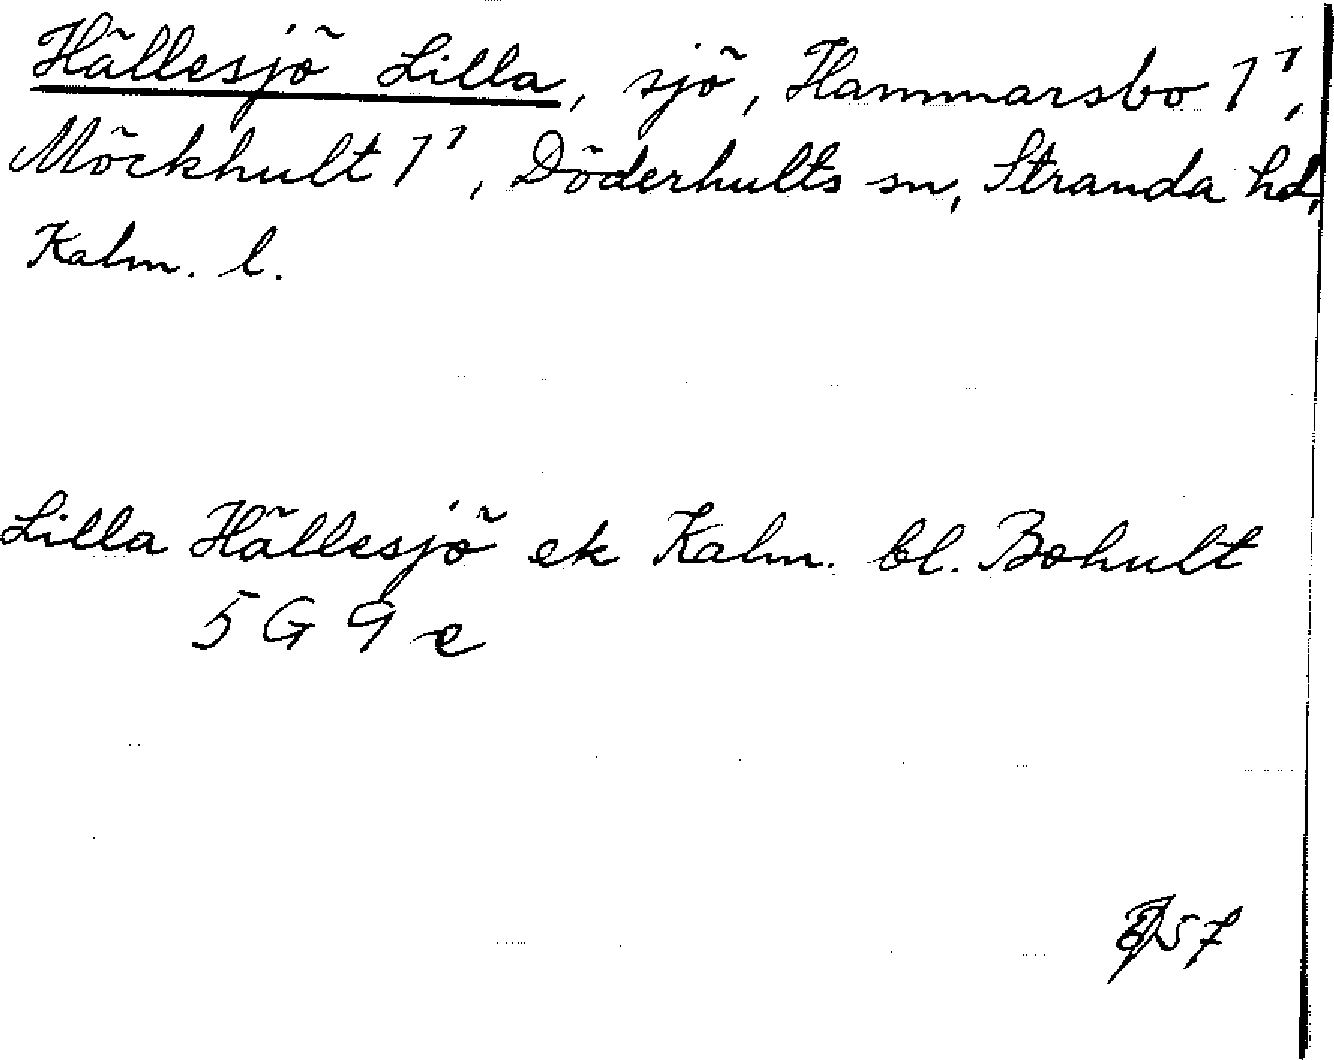 Hällesjö Lilla, sjö, Hammarsbo 1¹,
Möckhult 1¹, Döderhults sn, Stranda hd,
Kalm. l.
Lilla Hällesjö ek Kalm. bl. Bohult
5 G 9 e
57